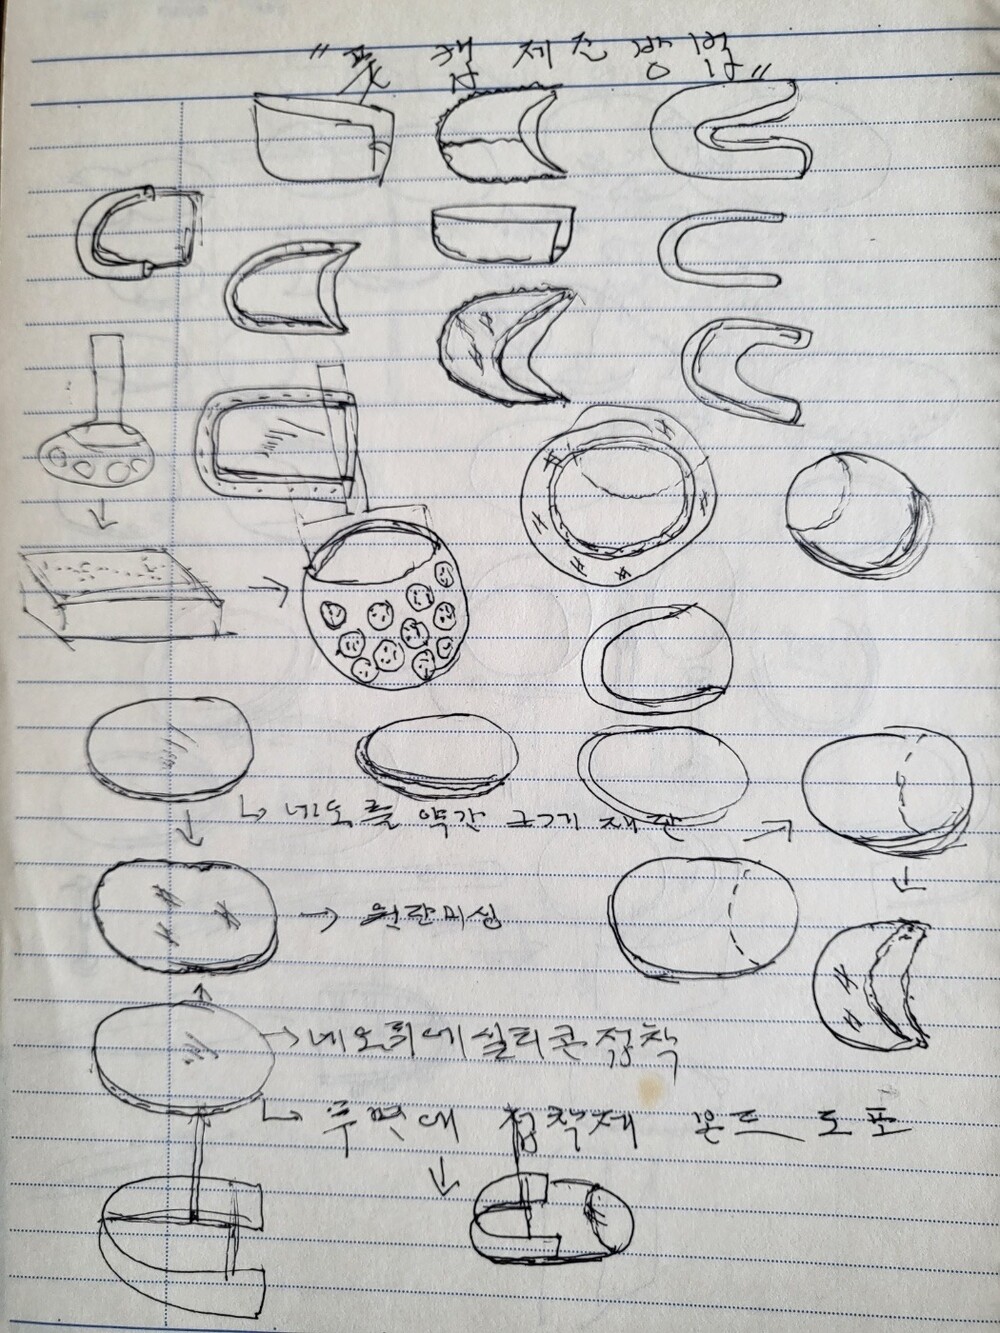 "풋 캡 제조방법"
네오플 약간 크게 재단
원단미싱
네오플에 실리콘 접착
후면에 접착제 본드 도포